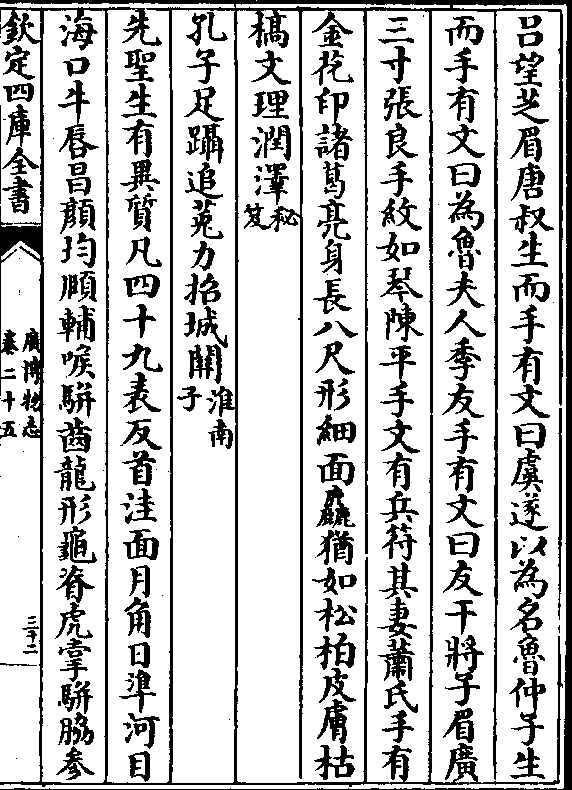 呂望芝眉唐叔生而手有文曰虞遂以為名魯仲子生
而手有文曰為魯夫人季友手有文曰友干將子眉廣
三寸張良手紋如琴陳平手文有兵符其妻蕭氏手有
金花印諸葛亮身長八尺形細面麤猶如松柏皮膚枯
槁文理潤澤秘笈
孔子足躡追菟力招城關淮南子
先聖生有異質凡四十九表反首洼面月角日準河目
海口牛唇昌顏均頤輔喉駢齒龍形龜脊虎掌駢脇參
欽定四庫全書
廣博物志
卷二十五
三十二